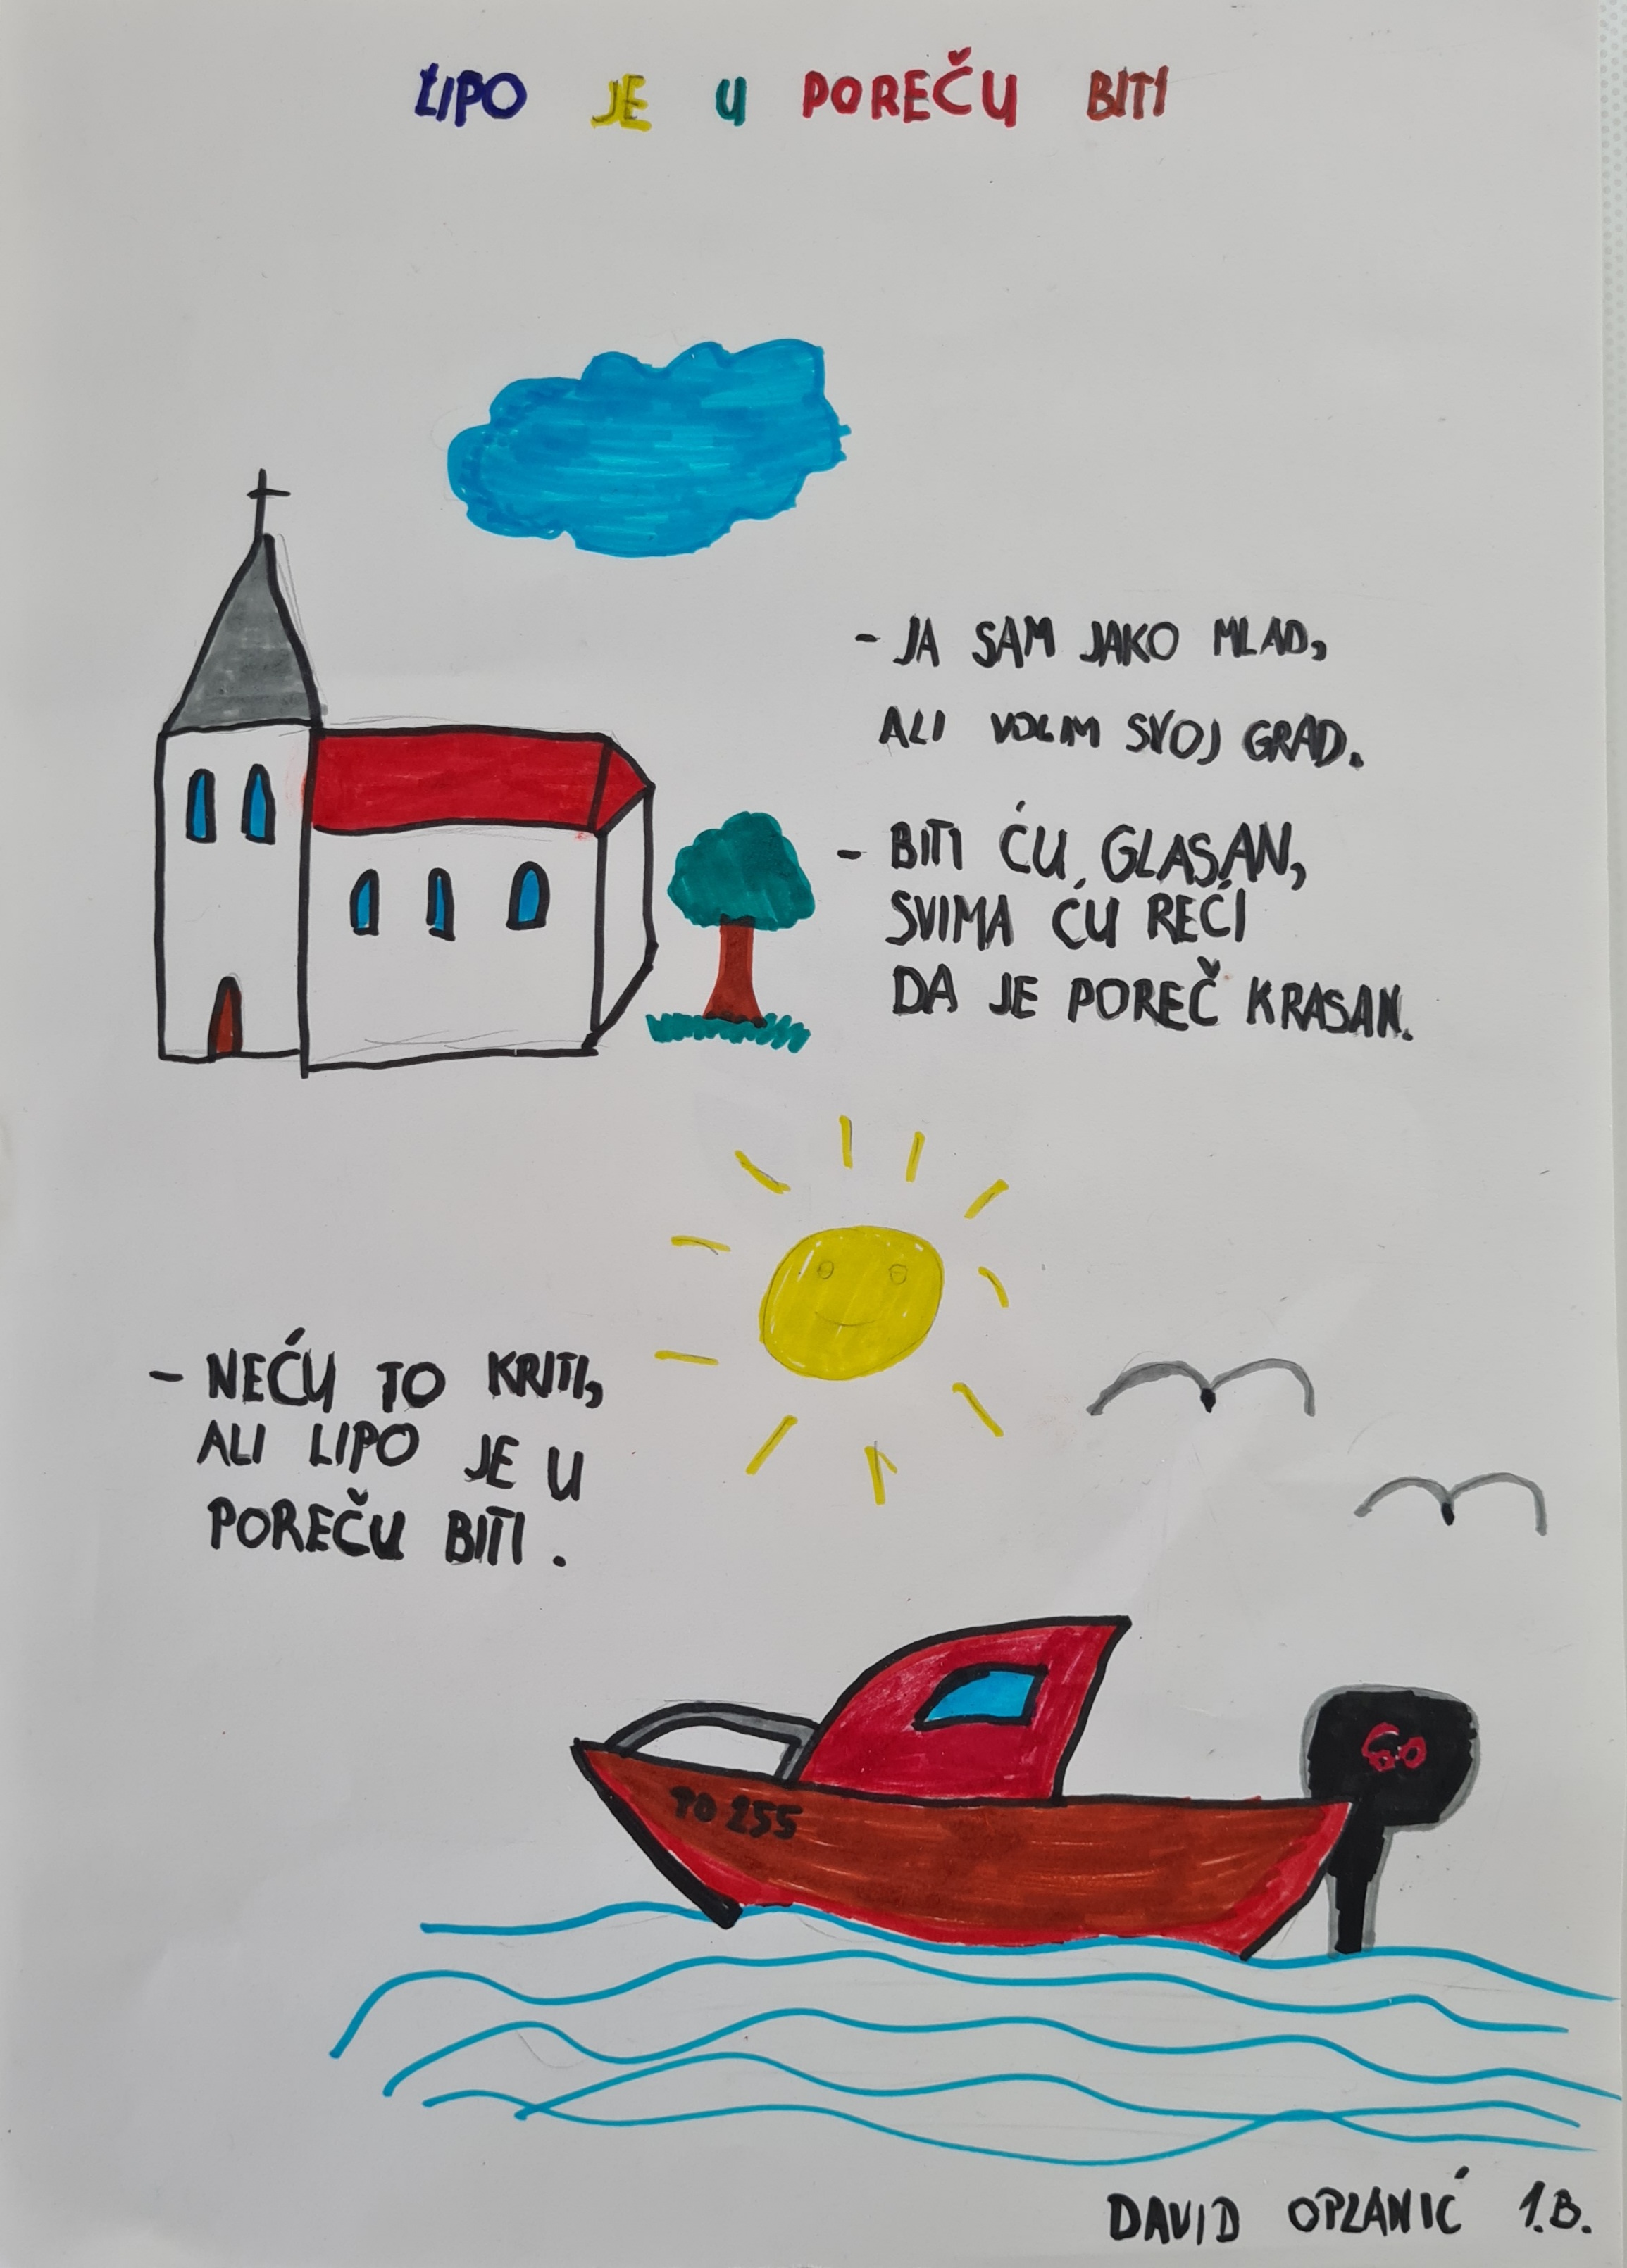 LIPO JE U POREČU BITI
- JA SAM JAKO MLAD,
ALI VOLIM SVOJ GRAD.
- BITI ĆU GLASAN,
SVIMA ĆU REĆI
DA JE POREČ KRASAN.
- NEĆU TO KRITI,
ALI LIPO JE U
POREČU BITI.
PO 255
DAVID OPLANIĆ 1.B.